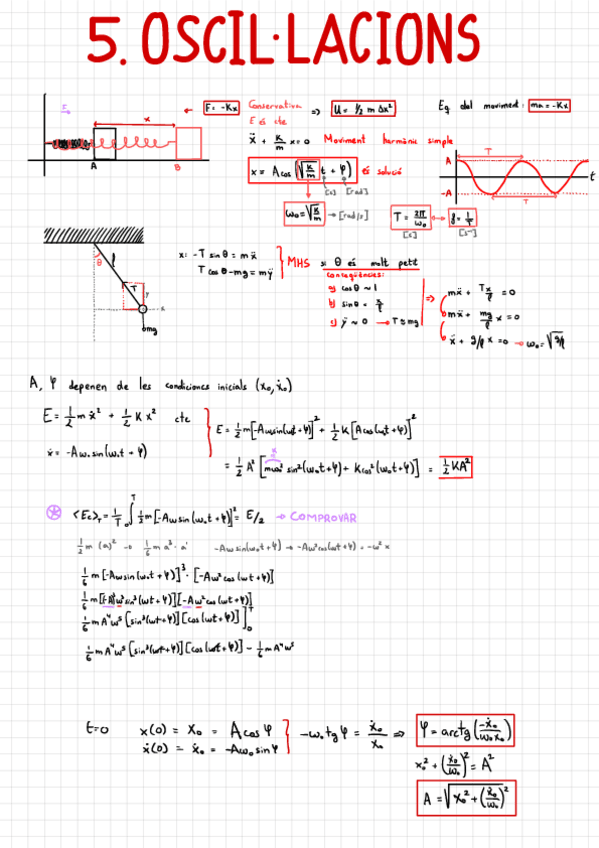 5. OSCIL·LACIONS
F = -Kx Conservativa => U = 1/2 m Δx² Eq. del moviment: ma = -Kx
E és cte
ẍ + K/m x = 0 Moviment harmònic simple
x = A cos(√(K/m) t + φ) és solució
[s] [rad]
ω₀ = √(K/m) → [rad/s] T = 2π/ω₀ f = 1/T
[s] [s⁻¹]
x
A B
T
A
-A
t
T
θ l
T y
x
mg
x: -T sin θ = mẍ
T cos θ - mg = mÿ
MHS si θ és molt petit
Conseqüències:
a) cos θ ~ 1
b) sin θ = x/l
c) ÿ ~ 0 → T ≈ mg
=> mẍ + Tx/l = 0
mẍ + mg/l x = 0
ẍ + g/l x = 0 → ω₀ = √(g/l)
A, φ depenen de les condicions inicials (x₀, ẋ₀)
E = 1/2 m ẋ² + 1/2 K x² cte
ẋ = -Aω₀ sin(ω₀t + φ)
E = 1/2 m[-Aω sin(ω₀t + φ)]² + 1/2 K [A cos(ω₀t + φ)]²
K
= 1/2 A² [mω₀² sin²(ω₀t + φ) + K cos²(ω₀t + φ)] = 1/2 KA²
<Ec>T = 1/T ∫₀ᵀ 1/2 m [-Aω sin(ω₀t + φ)]² = E/2 → COMPROVAR
1/2 m (a)² → 1/6 m a³ · a' -Aω sin(ω₀t + φ) → -Aω² cos(ωt + φ) = -ω² x
1/6 m [-Aω sin(ω₀t + φ)]³ · [-Aω² cos(ωt + φ)]
1/6 m [(-A)³ω³ sin³(ωt + φ)][-Aω² cos(ωt + φ)]
1/6 m A⁴ω⁵ [sin³(ωt + φ)][cos(ωt + φ)]]₀ᵀ
1/6 m A⁴ω⁵ [sin³(ωt + φ)][cos(ωt + φ)] - 1/6 m A⁴ω⁵
t=0 x(0) = x₀ = A cos φ
ẋ(0) = ẋ₀ = -Aω₀ sin φ
-ω₀ tg φ = ẋ₀/x₀ => φ = arctg(-ẋ₀/ω₀x₀)
x₀² + (ẋ₀/ω₀)² = A²
A = √(x₀² + (ẋ₀/ω₀)²)